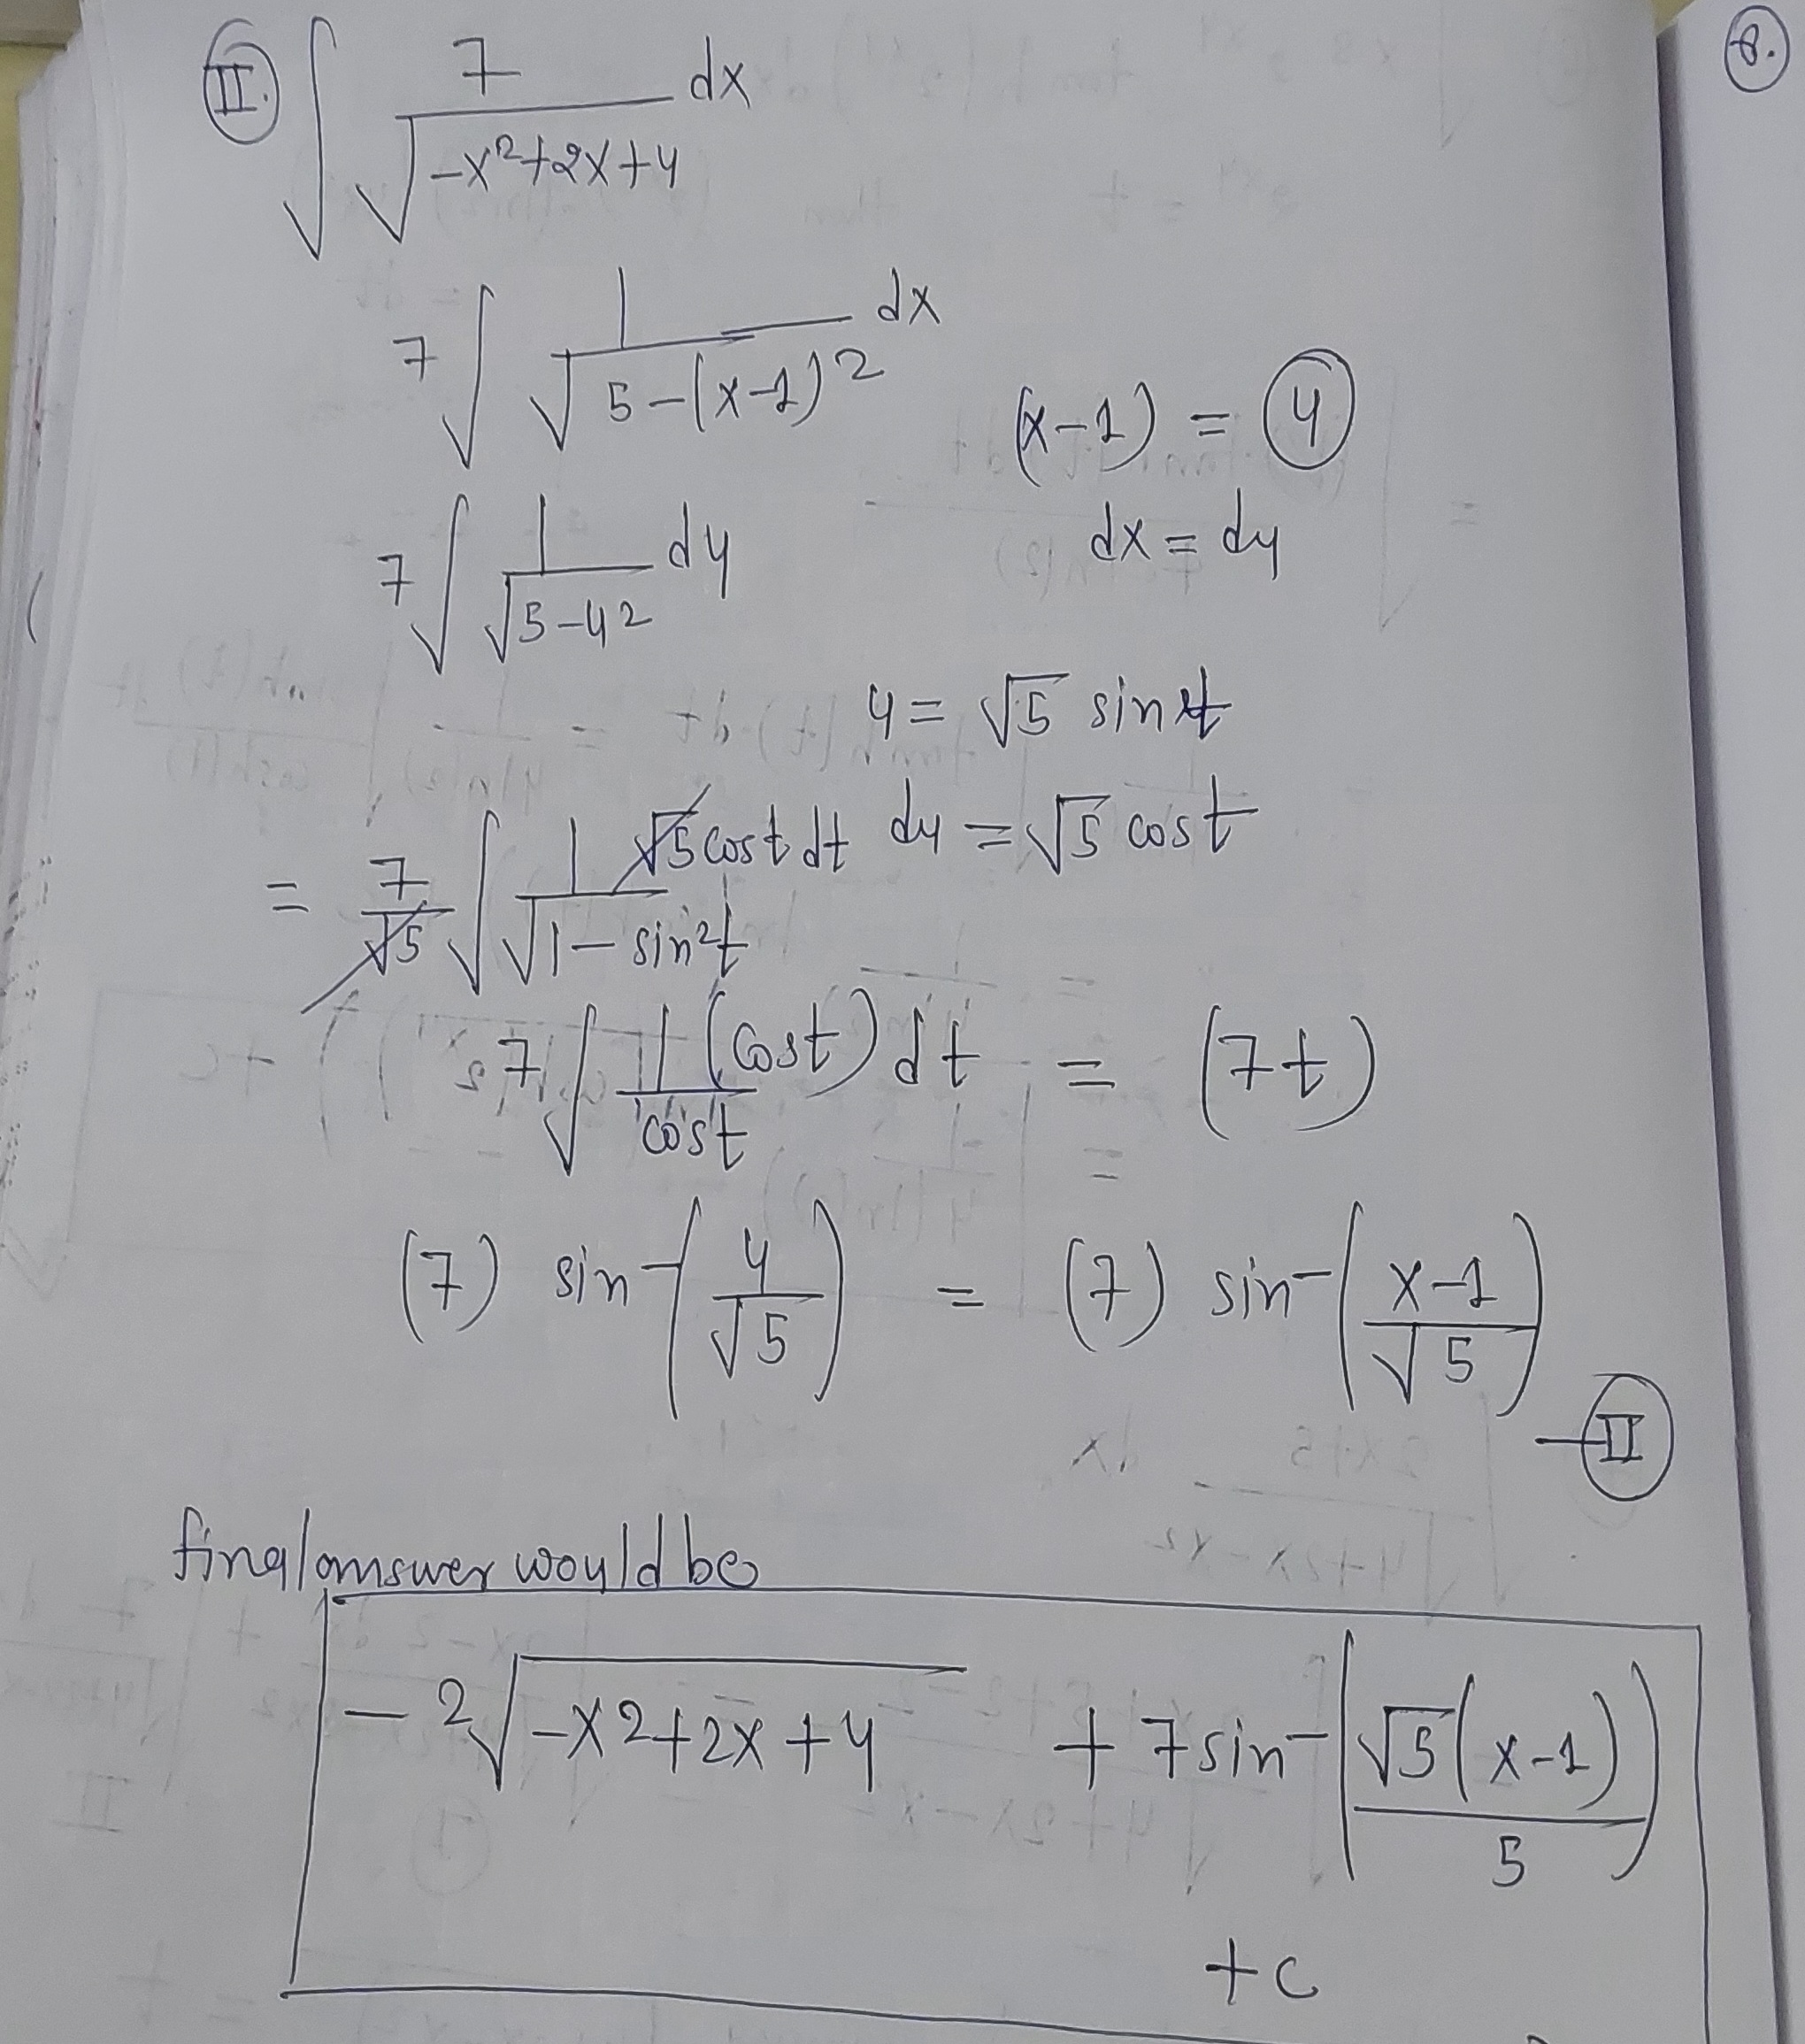 II. ∫ 7/√(-x²+2x+4) dx
8.
7 ∫ 1/√(5-(x-1)²) dx
(x-1) = y
7 ∫ 1/√(5-y²) dy
dx = dy
y = √5 sin t
= 7/√5 ∫ 1/√(1-sin²t) √5 cost dt
dy = √5 cost
7 ∫ 1/cost (cost) dt = (7t)
(7) sin⁻(y/√5) = (7) sin⁻((x-1)/√5)
—II
final answer would be
- 2√(-x2+2x+4) + 7 sin⁻(√5(x-1)/5)
+c